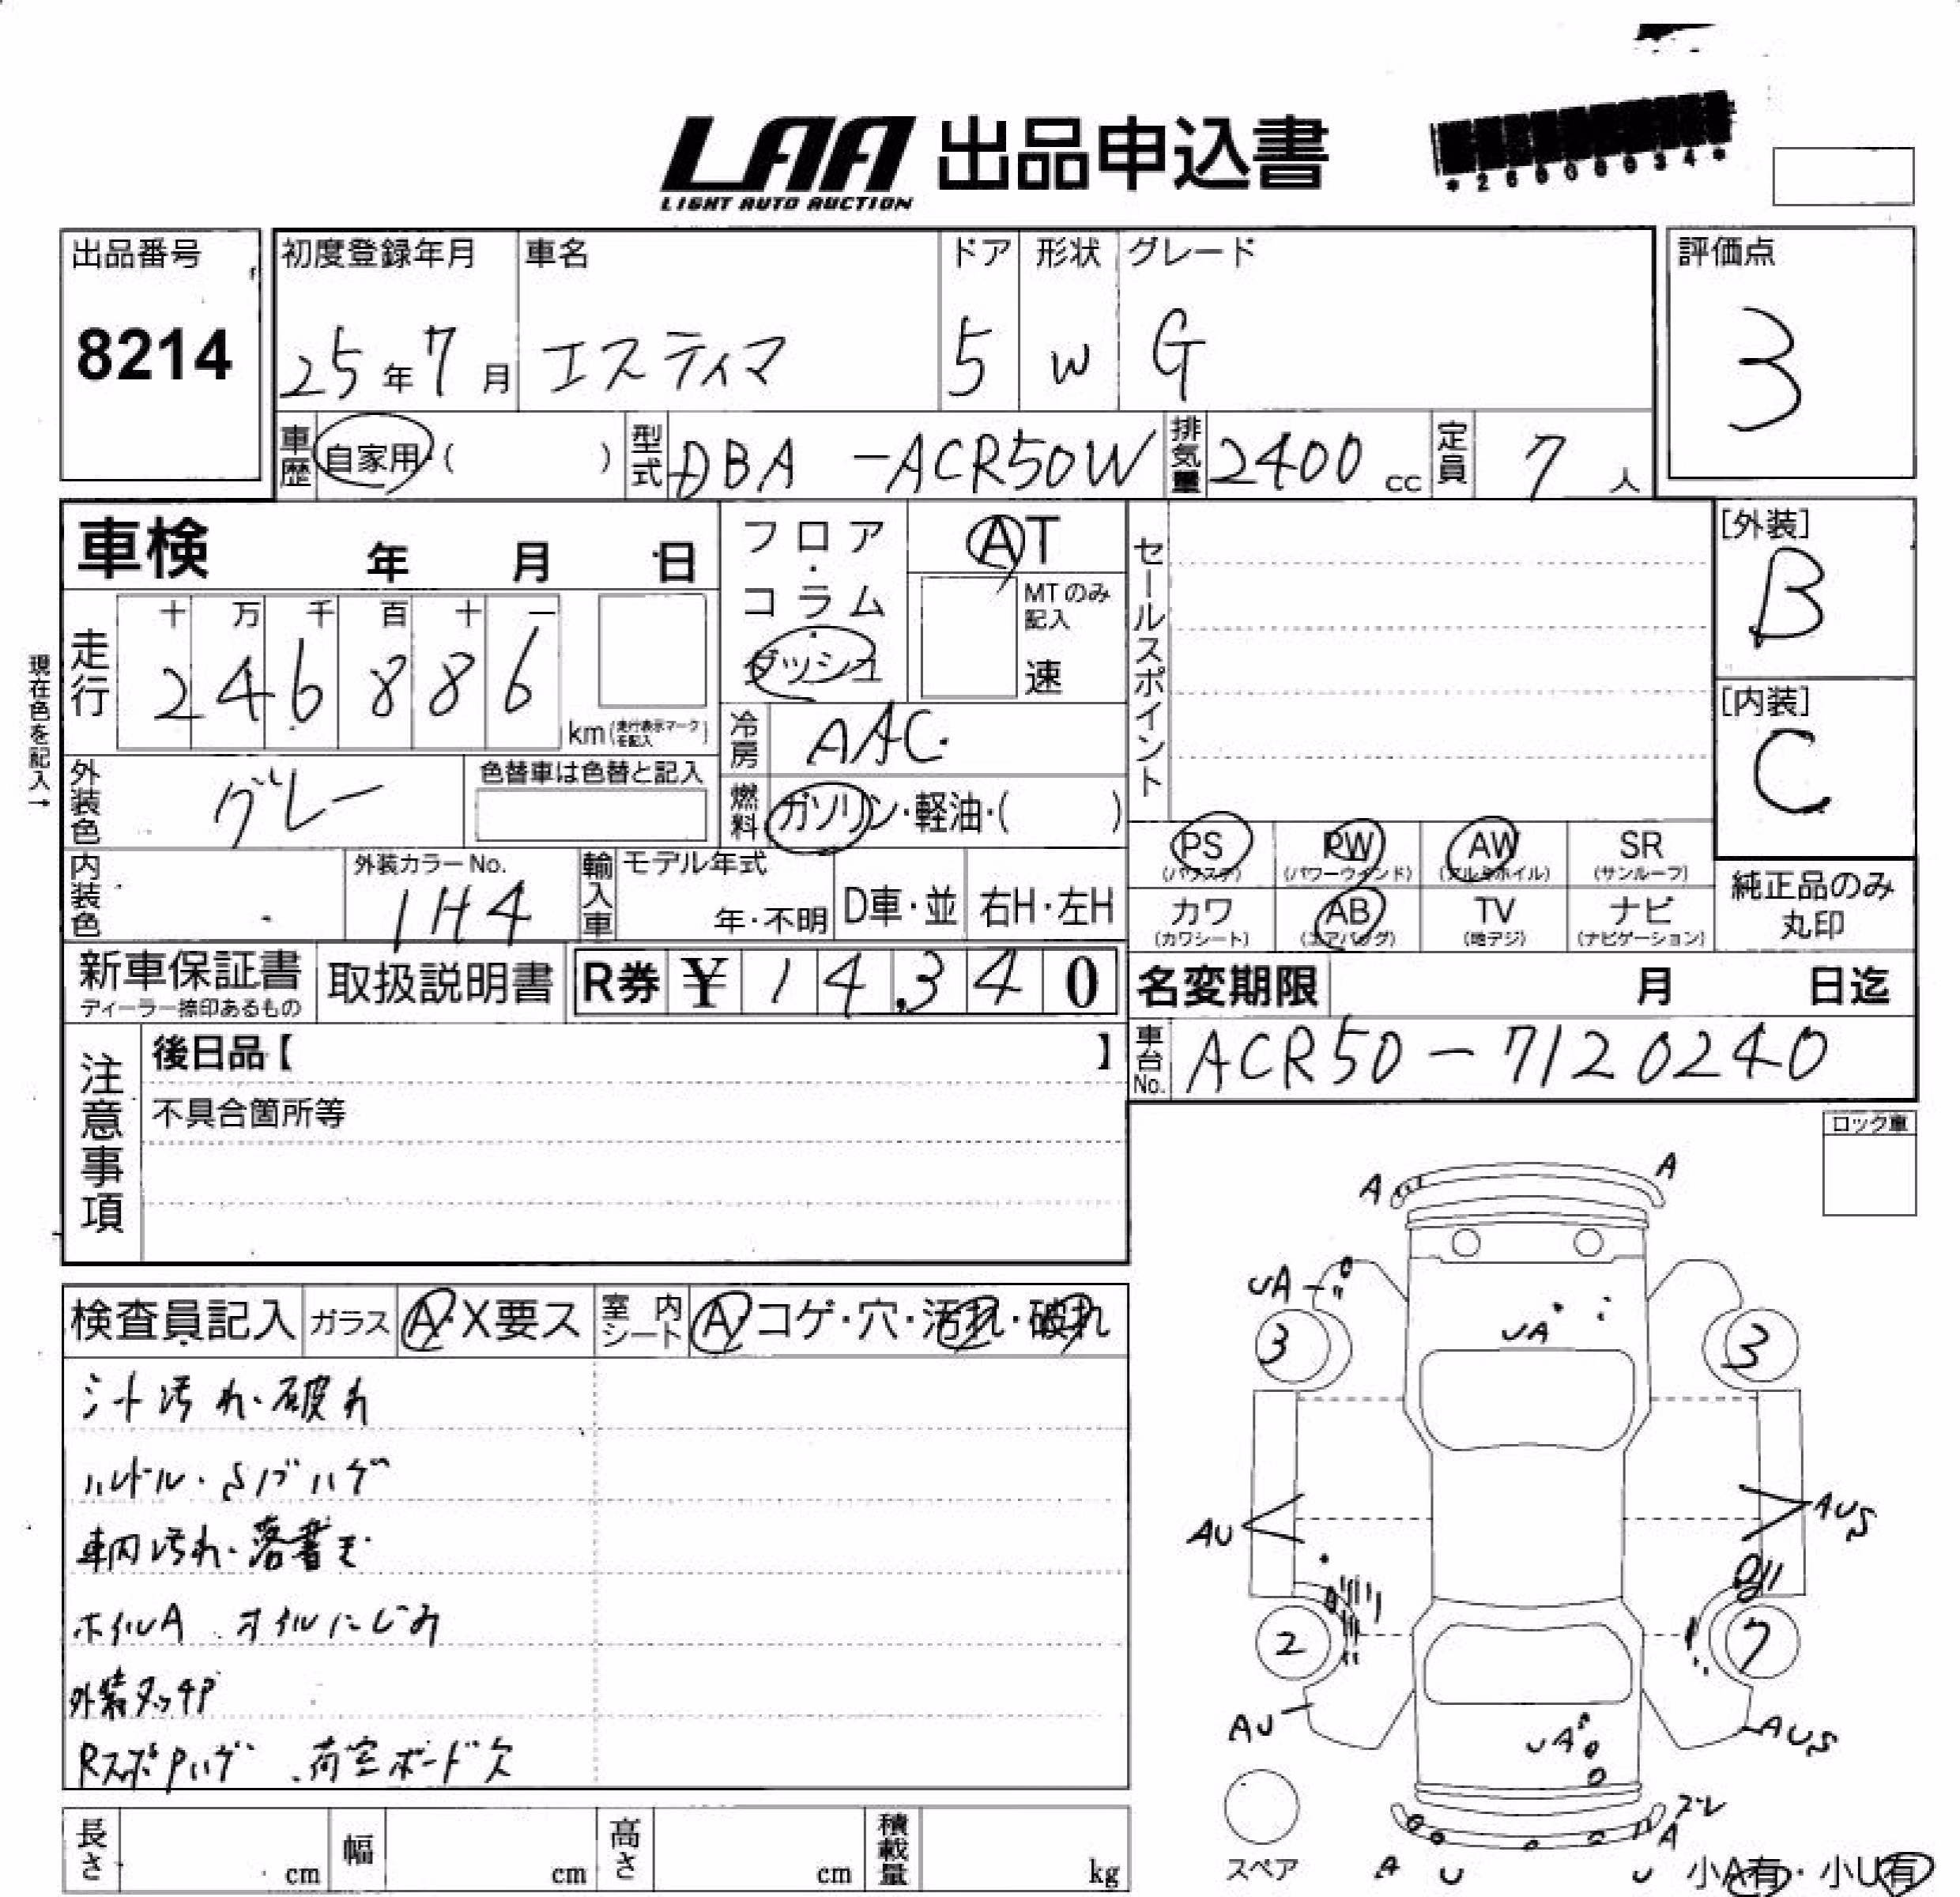 LAA 出品申込書
LIGHT AUTO AUCTION
*26000034*
出品番号
8214
初度登録年月 車名 ドア 形状 グレード
25年7月 エスティマ 5 W G
評価点
3
車歴 自家用・( ) 型式 DBA -ACR50W 排気量 2400 cc 定員 7 人
車検 年 月 日
フロア・コラム・ダッシュ
AT
MTのみ記入
速
セールスポイント
[外装]
B
[内装]
C
現在色を記入→
走行 十 万 千 百 十 一
246886
km (走行表示マークを記入)
冷房 AAC
外装色 グレー 色替車は色替と記入
燃料 ガソリン・軽油・( )
PS PW AW SR
(パワステ) (パワーウインド) (アルミホイル) (サンルーフ)
カワ AB TV ナビ
(カワシート) (エアバッグ) (地デジ) (ナビゲーション)
純正品のみ
丸印
内装色 外装カラーNo. 1H4 輸入車 モデル年式 年・不明 D車・並 右H・左H
新車保証書
ディーラー捺印あるもの
取扱説明書 R券 ¥ 14,340
名変期限 月 日迄
車台No. ACR50-7120240
注意事項
後日品【 】
不具合箇所等
ロック車
検査員記入 ガラス A・X要ス 室内シート A・コゲ・穴・汚れ・破れ
シート汚れ・破れ
ハンドル・ノブハゲ
車内汚れ・落書き
ホイルA オイルにじみ
外装タッチP
RスポPハゲ 荷室ボード欠
A A
UA
3 UA 3
AU AUS
2 7
AU AUS
UA
ズレ
A
A U U
スペア
小A有・小U有
長さ cm 幅 cm 高さ cm 積載量 kg